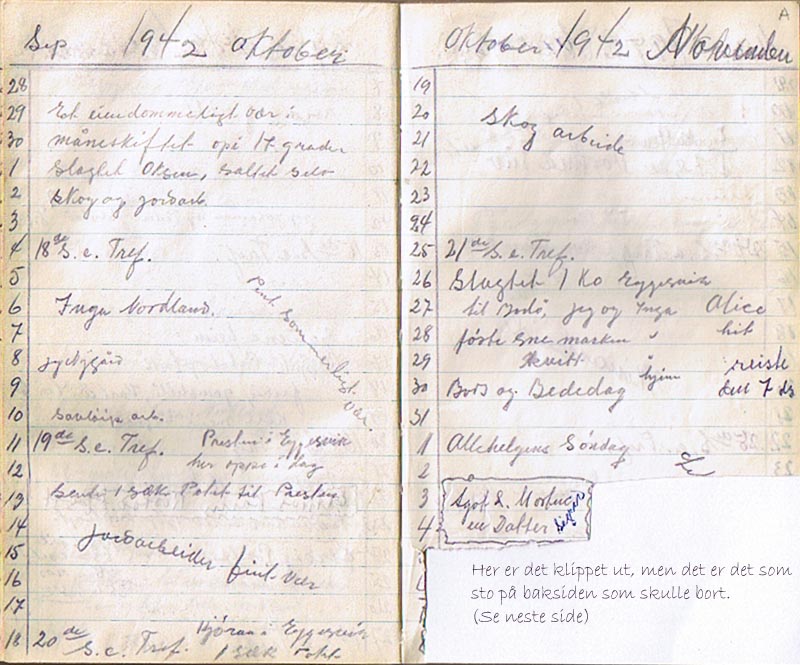 Sep 1942 Oktober
28
29 Et eiendommeligt vær i
30 måneskiftet opi 17 grader
1 Slagtet Oksen, saltet selv
2 Skog og jordarb.
3
4 18de S. e. Tref.
5
6 Inga Nordland.
Pent Sommerligt Vær.
7
8
9
10 arb.
11 19de S. e. Tref. Presten i Eggesvik
12 her oppe i dag
13 Sendt 1 sæk Potet til Presten
14
Jordarbeider fint Vær
15
16
17
18 20de S. e. Tref. i Eggesvik
1 sæk
A
Oktober 1942 November
19
20
Skog arbeide
21
22
23
24
25 21de S. e. Tref.
26 Slagtet 1 Ko Eggesvik
27 til Bodö, jeg og Inga Alice
28 förte Sne marken hit
29 hvitt hjem reiste
30 Bods og Bededag den 7 ds
31
1 Allehelgens Söndag
2
3 Agot & Morten
4 en Datter
Her er det klippet ut, men det er det som
sto på baksiden som skulle bort.
(Se neste side)